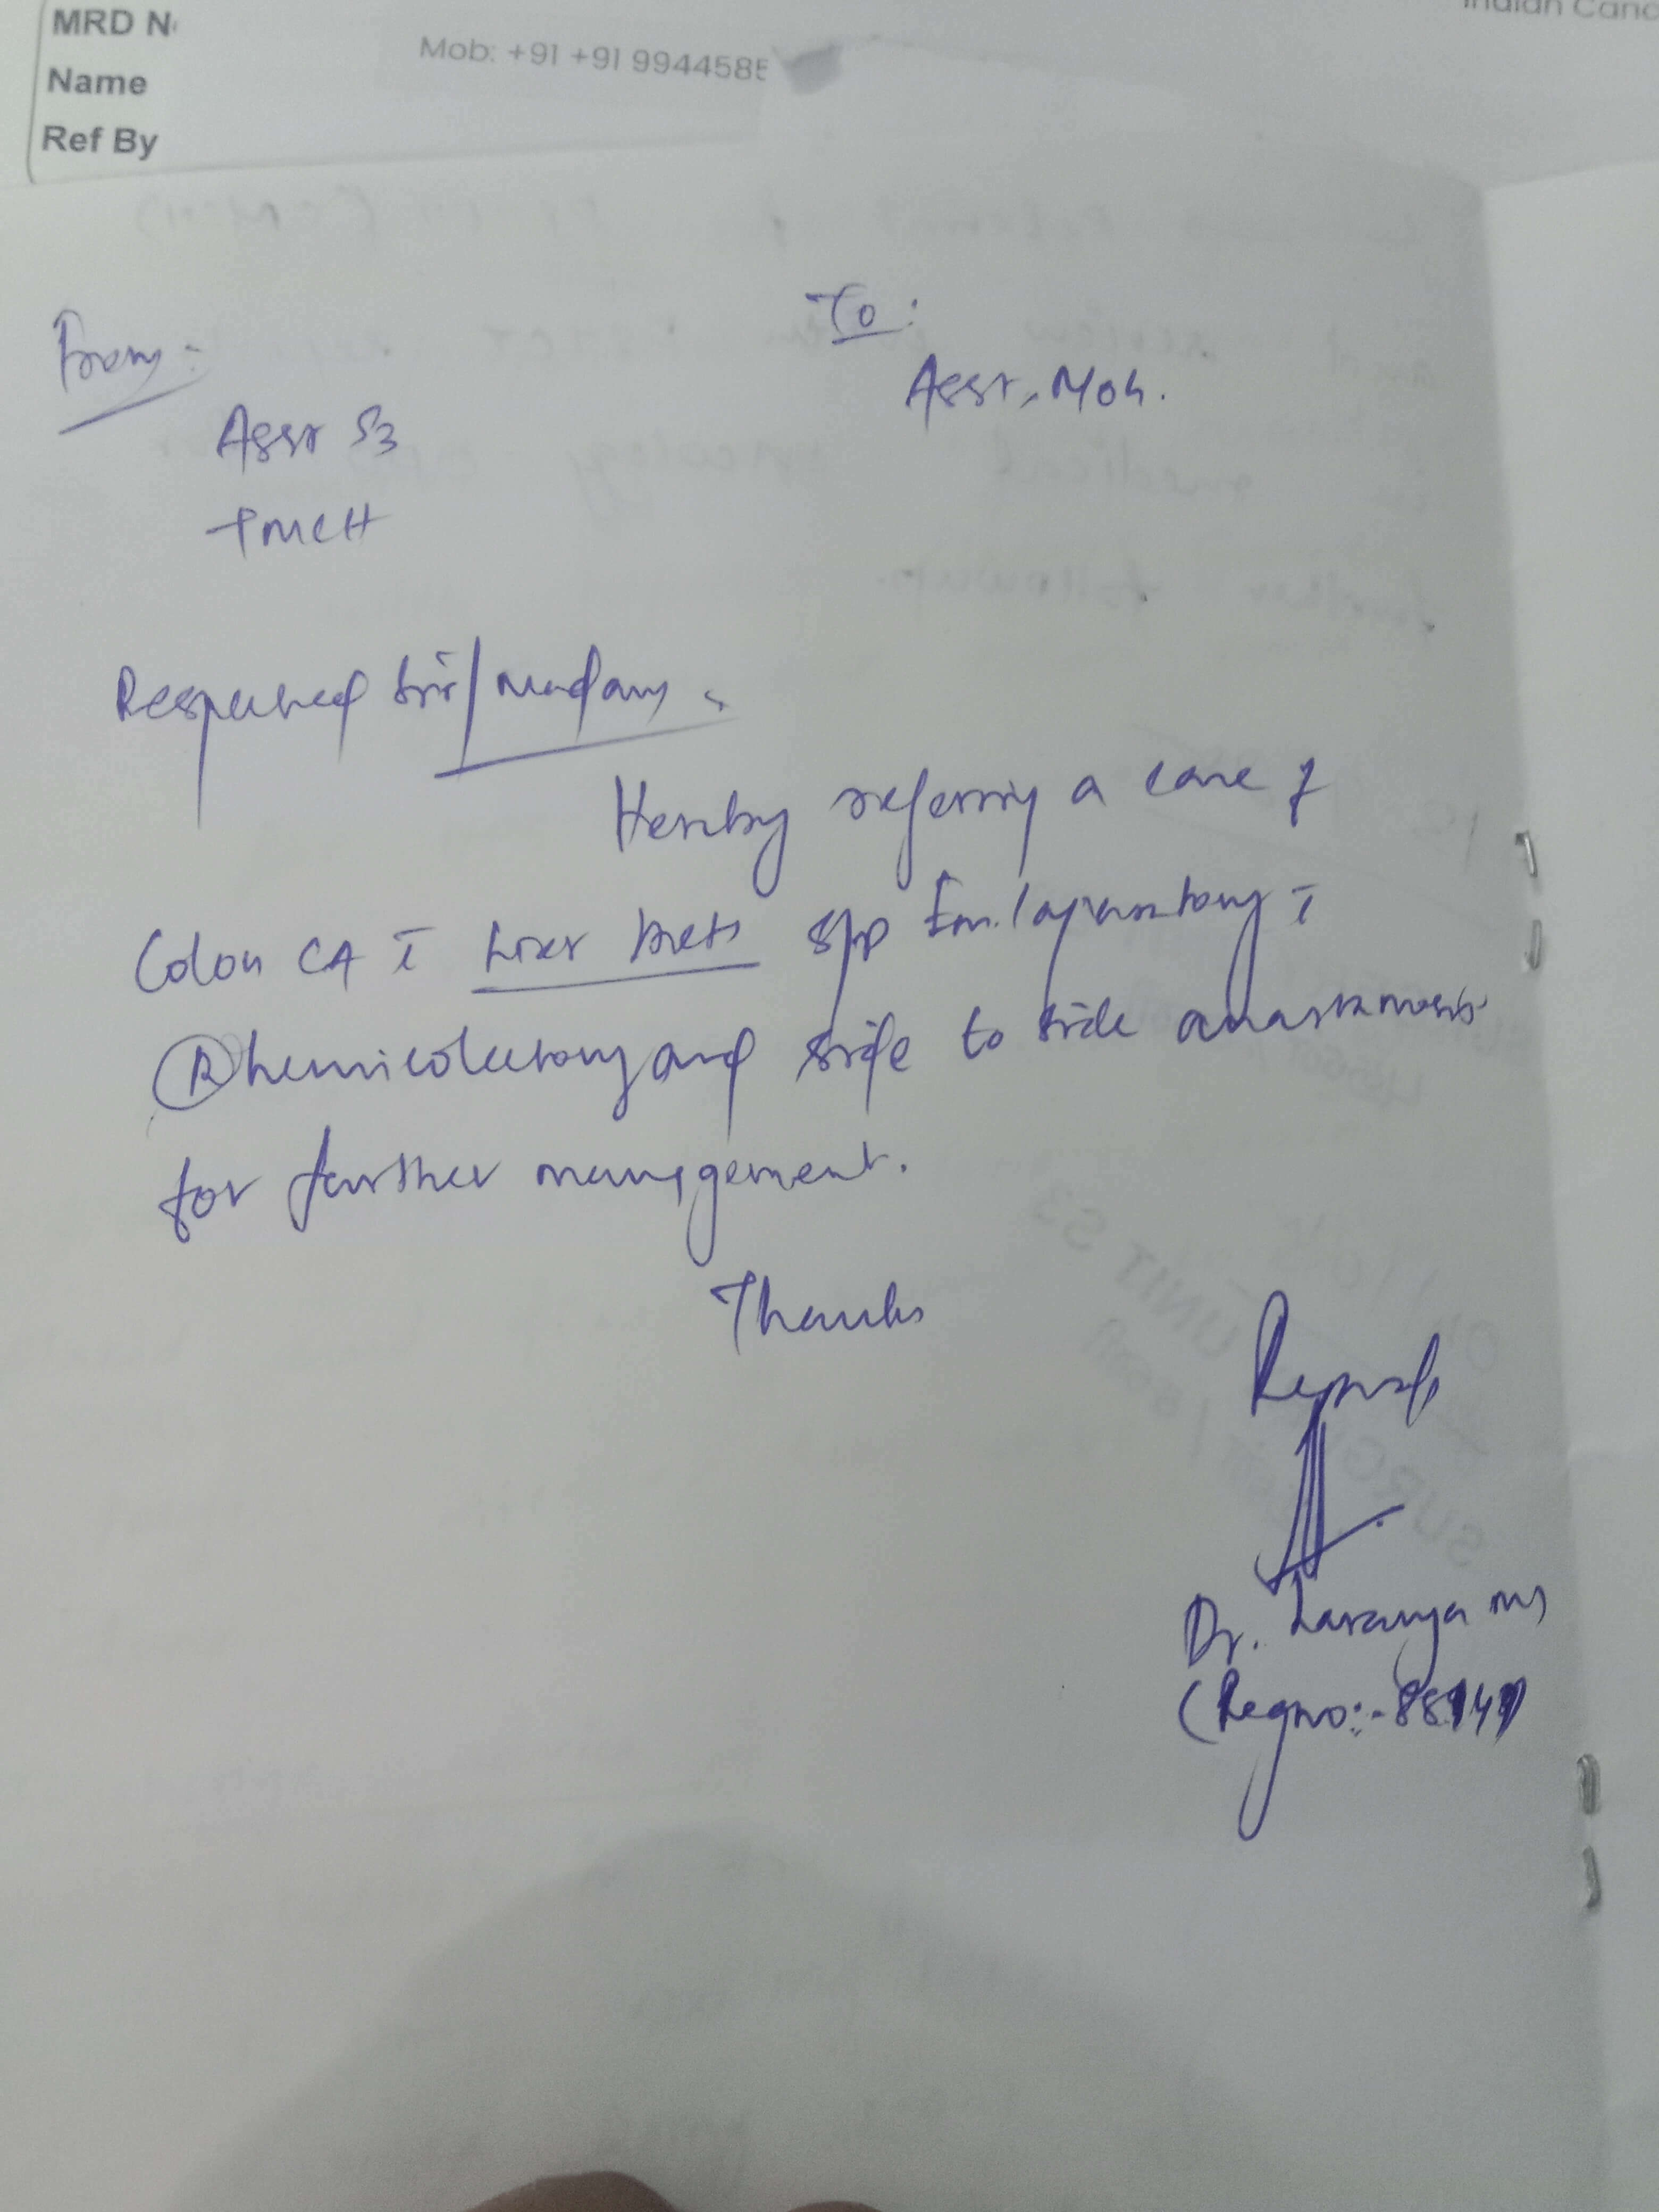 MRD N
Mob: +91 +91 9944585
Name
Ref By
From:-
Asst S3
TMCH
To:
Asst, Moh.
Respected Sir/Madam,
Hereby referring a case of
Colon CA c̄ Liver Mets S/p Em. laparotomy c̄
Ⓡ hemicolectomy and side to side anastomosis
for further management.
Thanks
Dr. Saranya MS
(Regno:-